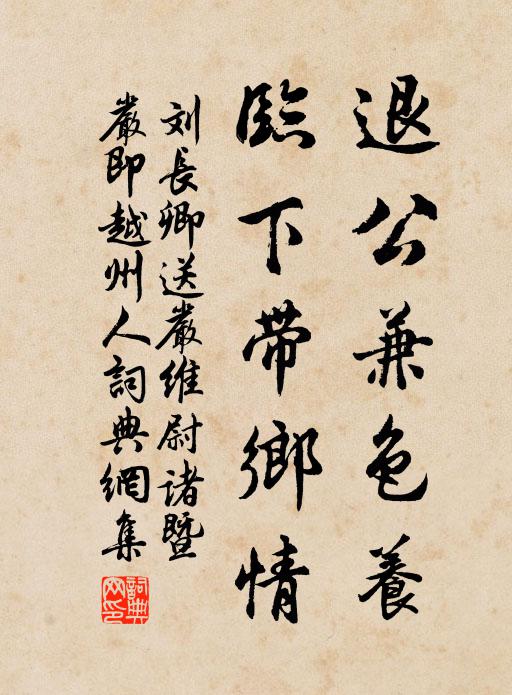 退公兼色養
臨下帶鄉情
刘長卿送嚴維尉诸暨
嚴即越州人詞典網集
詞典网印